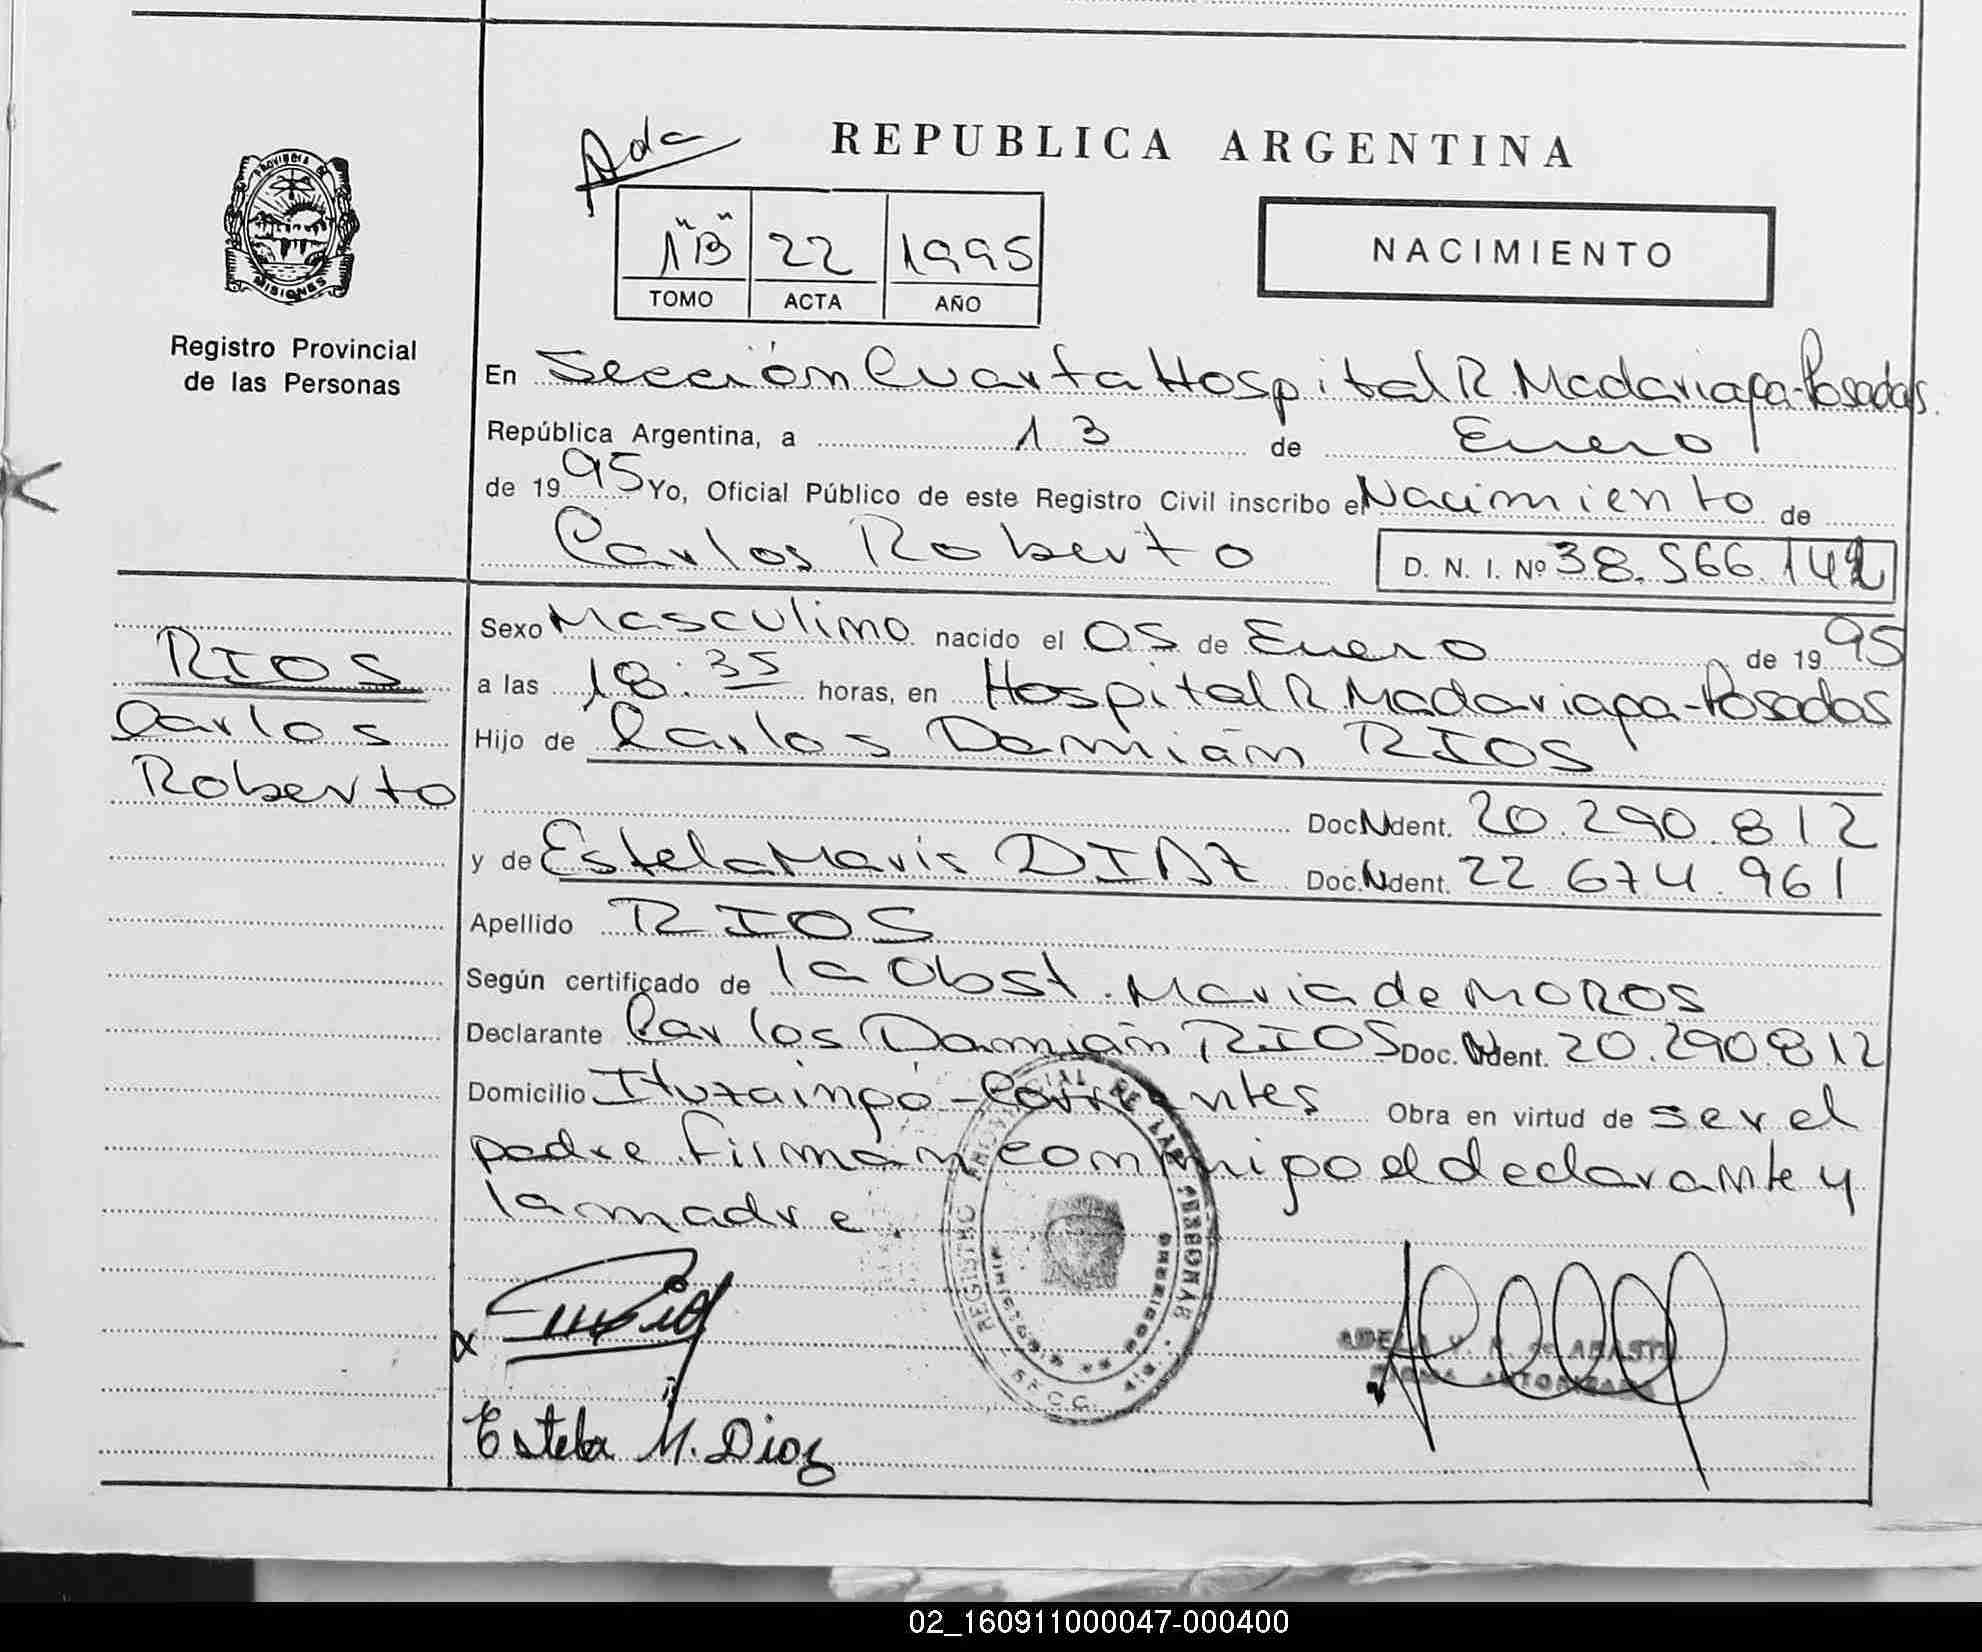 REPUBLICA ARGENTINA
Ada
1"B" 22 1995
TOMO ACTA AÑO
NACIMIENTO
PROVINCIA DE
MISIONES
Registro Provincial
de las Personas
En Sección Cuarta Hospital R. Madariaga-Posadas.
República Argentina, a 13 de Enero
de 1995 Yo, Oficial Público de este Registro Civil inscribo el Nacimiento de
Carlos Roberto D. N. I. Nº 38.566.142
RIOS
Carlos
Roberto
Sexo Masculino nacido el 05 de Enero de 1995
a las 18:35 horas, en Hospital R Madariaga-Posadas
Hijo de Carlos Damián RIOS
Doc. N Ident. 20.290.812
y de Estela Maris DIAZ Doc. N Ident. 22.674.961
Apellido RIOS
Según certificado de la Obst. Maria de MOROS
Declarante Carlos Damián RIOS Doc. N Ident. 20.290.812
Domicilio Ituzaingó-Corrientes Obra en virtud de ser el
padre firman conmigo el declarante y
la madre.
REGISTRO PROVINCIAL DE LAS PERSONAS
MINISTERIO DE GOBIERNO
x
Estela M. Diaz
02_160911000047-000400